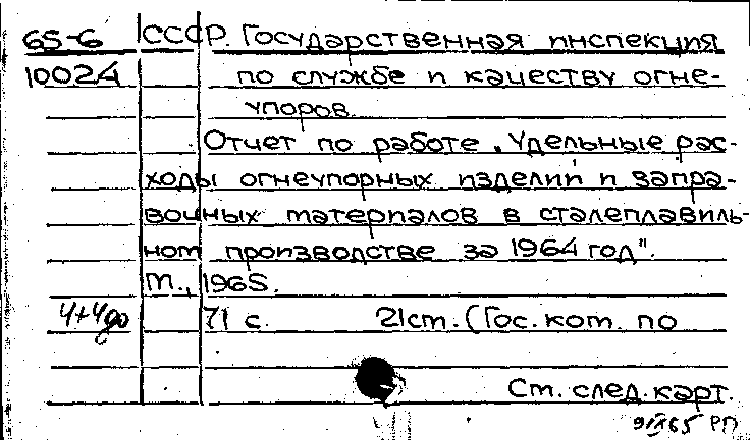 65-6 СССР. Государственная инспекция
10024 по службе и качеству огне-
упоров.
Отчет по работе „Удельные рас-
ходы огнеупорных изделий и запра-
вочных материалов в сталеплавиль-
ном производстве за 1964 год".
М., 1965.
71 с. 21см. (Гос. ком. по
См. след. карт.